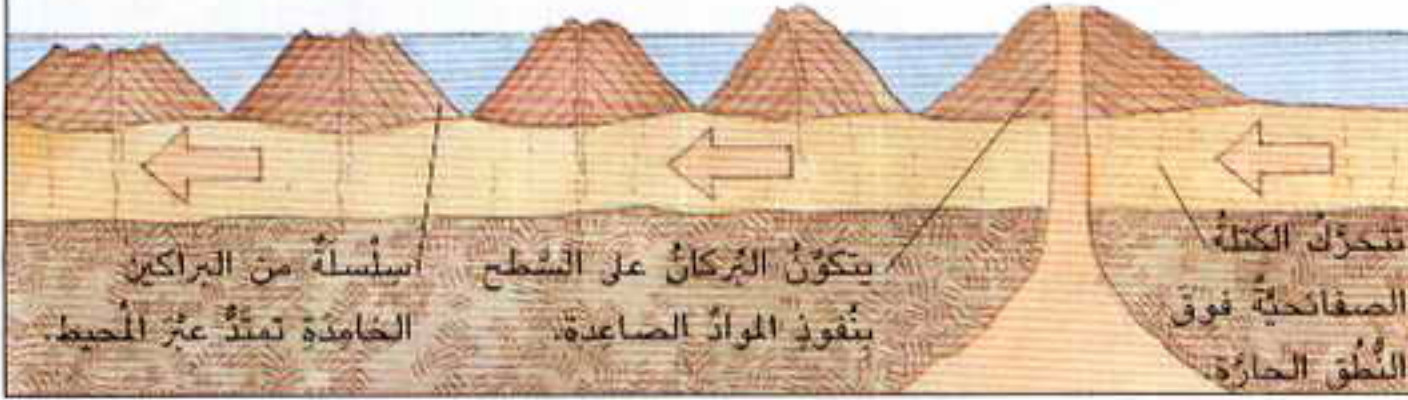 تتحرّكُ الكتلةُ
الصفائحيّةُ فوقَ
النُّطُقِ الحارّةِ.
يتكوّنُ البُركانُ على السَّطحِ
بنُفوذِ الموادِّ الصاعدة.
سِلْسلةٌ من البراكين
الخامدةِ تمتدُّ عبْرَ المُحيط.